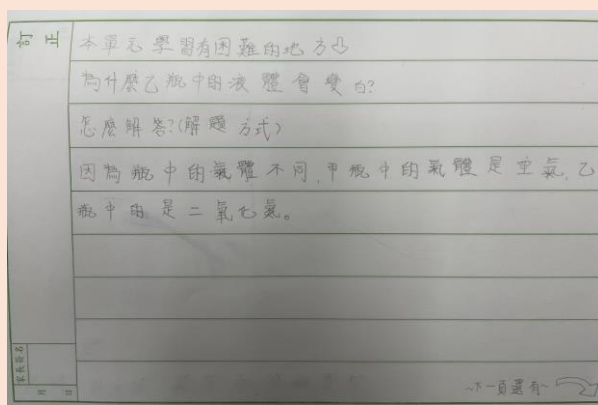 訂正
本單元學習有困難的地方⇩
為什麼乙瓶中的液體會變白?
怎麼解答?(解題方式)
因為瓶中的氣體不同,甲瓶中的氣體是空氣,乙
瓶中的是二氧化氮。
家長簽名
月 日
~下一頁還有~